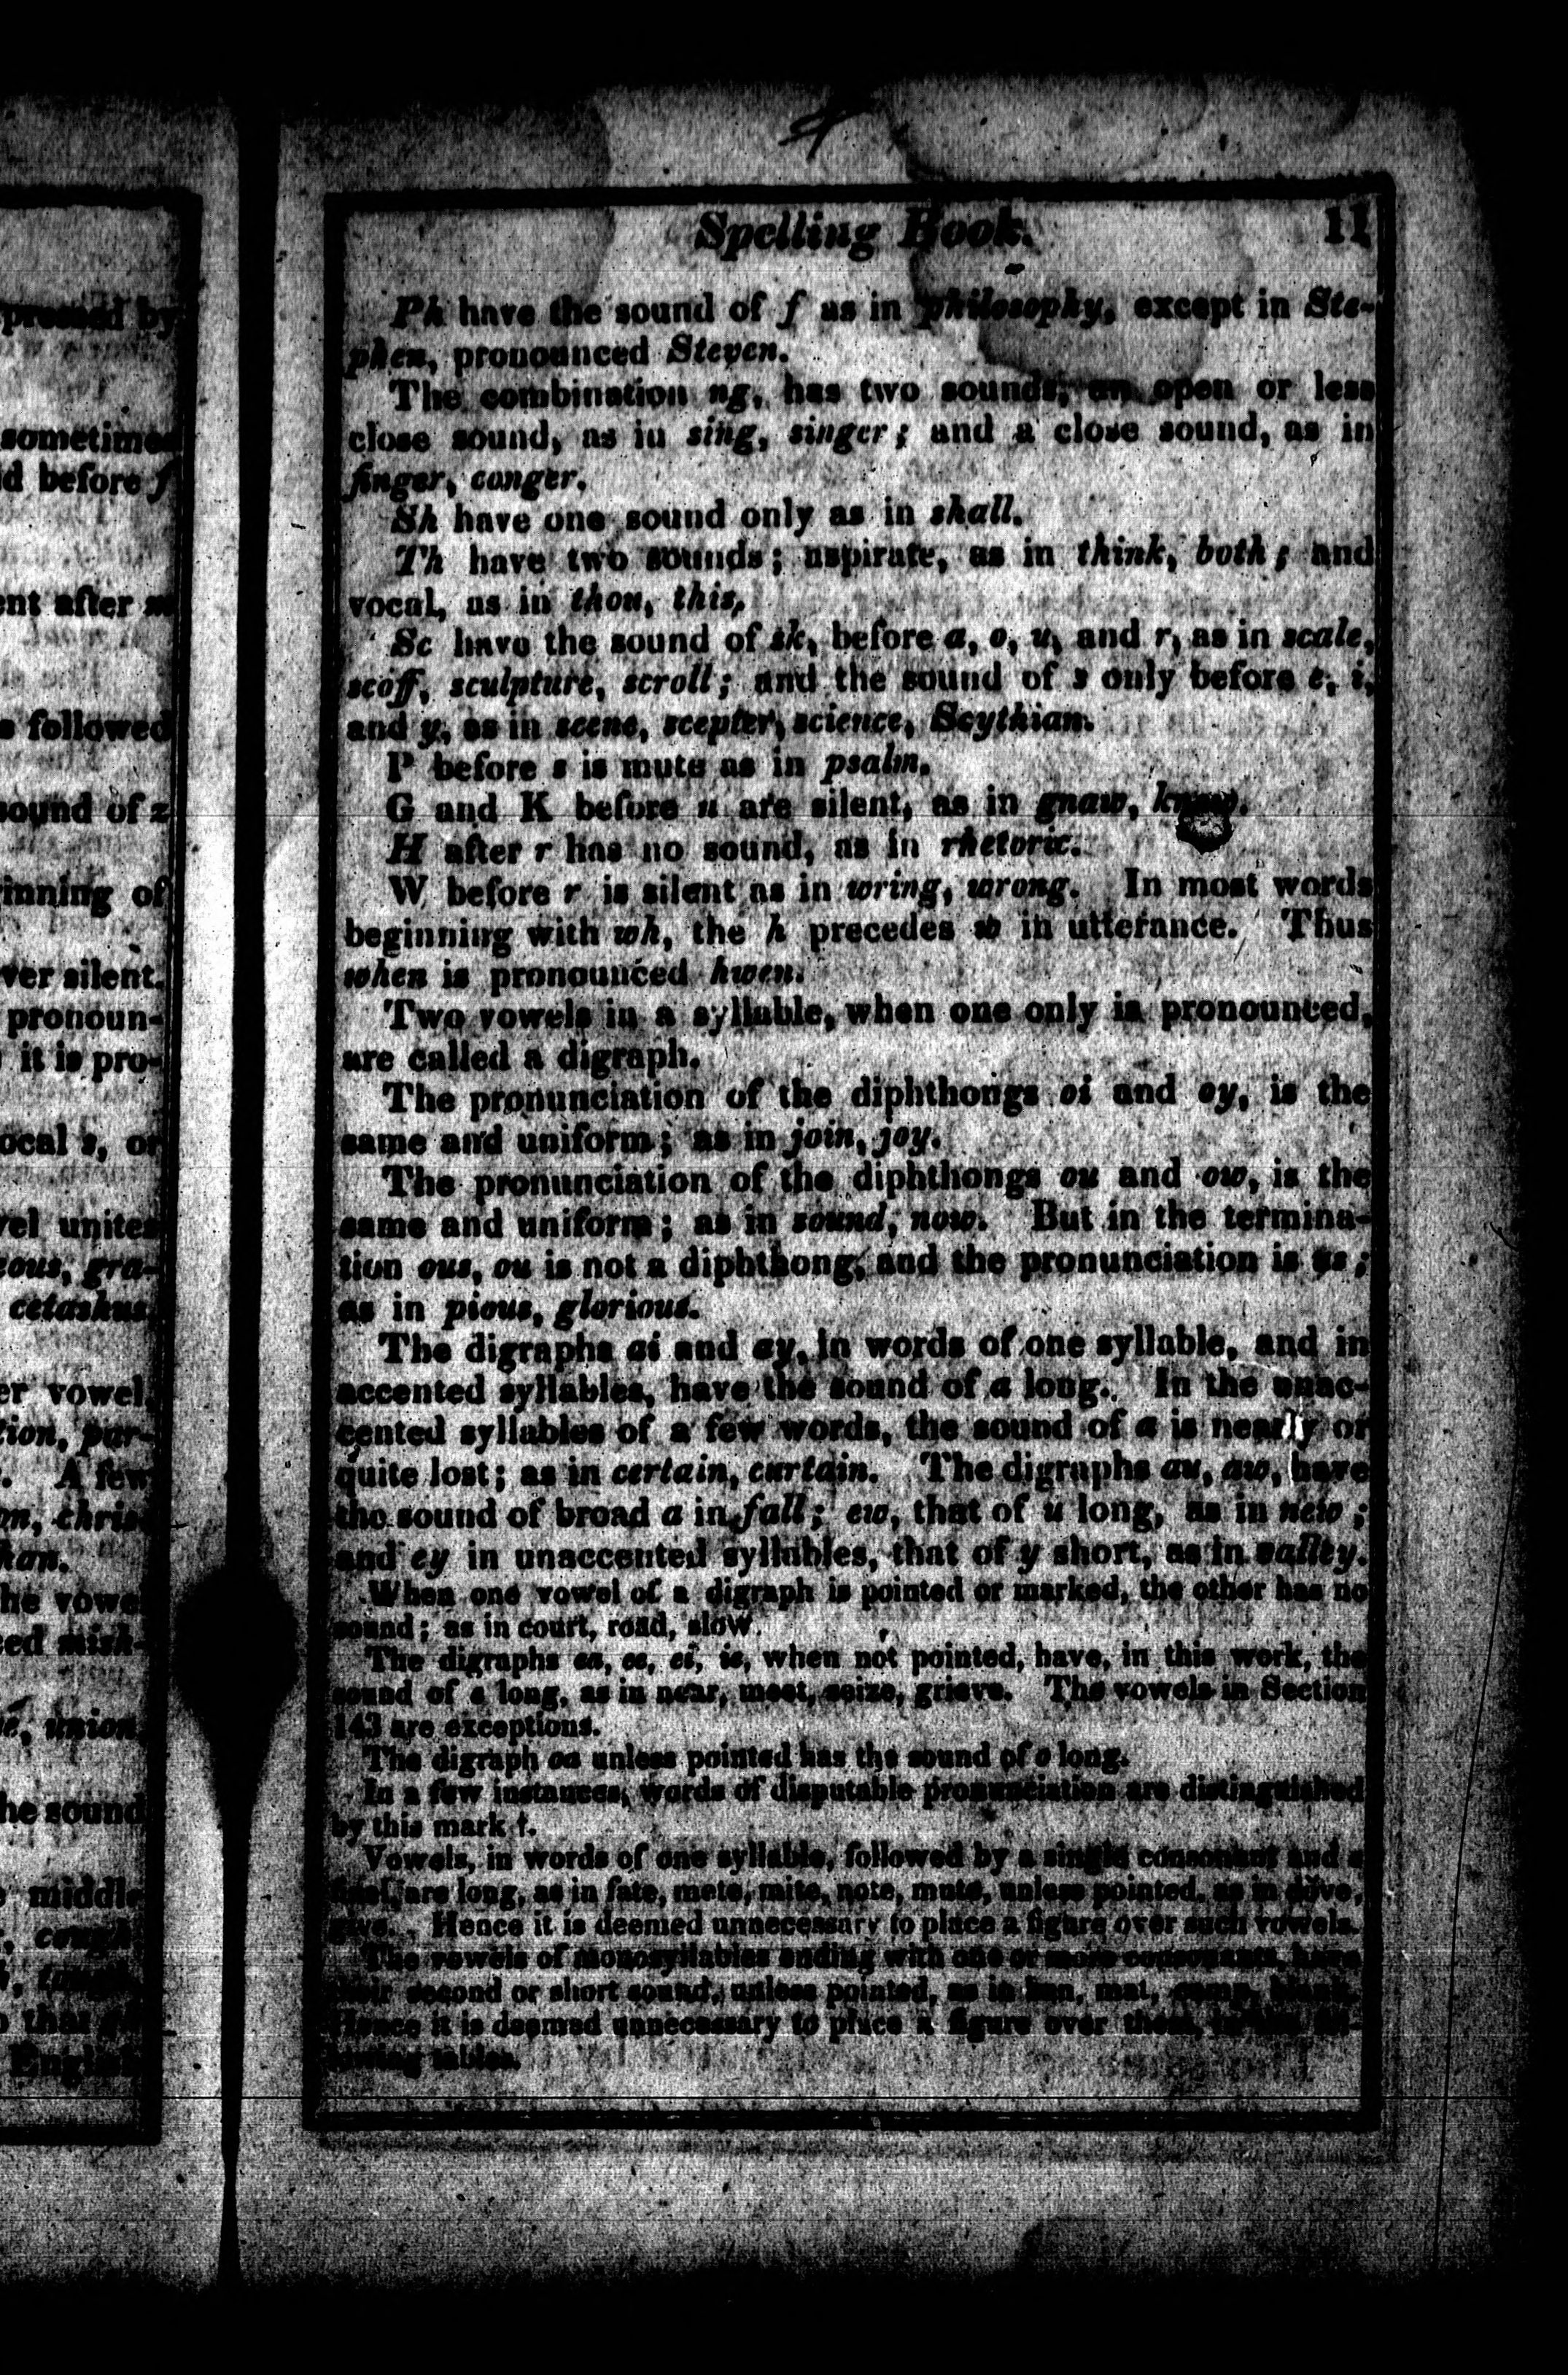 pressed by
sometimes
before f
ent after m
followed
sound of z
inning of
ver silent.
pronoun-
it is pro-
ocal s, or
vel unites
eous, gra-
cetashus
er vowel,
tion, par-
A few
chris-
han.
he vowel
mish-
union.
he sound
middle
cough
that
English
Spelling Book. 11
Ph have the sound of f as in philosophy, except in Ste-
phen, pronounced Steven.
The combination ng, has two sounds, an open or less
close sound, as in sing, singer; and a close sound, as in
finger, conger.
Sh have one sound only as in shall.
Th have two sounds; aspirate, as in think, both; and
vocal, as in thou, this,
Sc have the sound of sk, before a, o, u, and r, as in scale,
scoff, sculpture, scroll; and the sound of s only before e, i,
and y, as in scene, scepter, science, Scythian.
P before s is mute as in psalm.
G and K before n are silent, as in gnaw, know.
H after r has no sound, as in rhetoric.
W before r is silent as in wring, wrong. In most words
beginning with wh, the h precedes w in utterance. Thus
when is pronounced hwen.
Two vowels in a syllable, when one only is pronounced,
are called a digraph.
The pronunciation of the diphthongs oi and oy, is the
same and uniform; as in join, joy.
The pronunciation of the diphthongs ou and ow, is the
same and uniform; as in sound, now. But in the termina-
tion ous, ou is not a diphthong, and the pronunciation is us;
as in pious, glorious.
The digraphs ai and ay, in words of one syllable, and in
accented syllables, have the sound of a long. In the unac-
cented syllables of a few words, the sound of a is nearly or
quite lost; as in certain, curtain. The digraphs au, aw, have
the sound of broad a in fall; ew, that of u long, as in new;
and ey in unaccented syllables, that of y short, as in valley.
When one vowel of a digraph is pointed or marked, the other has no
sound; as in court, road, slow.
The digraphs ea, ee, ei, ie, when not pointed, have, in this work, the
sound of e long, as in near, meet, seize, grieve. The vowels in Section
143 are exceptions.
The digraph oa unless pointed has the sound of o long.
In a few instances, words of disputable pronunciation are distinguished
by this mark †.
Vowels, in words of one syllable, followed by a single consonant and e
final, are long, as in fate, mete, mite, note, mute, unless pointed, as in dove,
give. Hence it is deemed unnecessary to place a figure over such vowels.
The vowels of monosyllables ending with one or more consonants, have
their second or short sound, unless pointed, as in man, mat,
Hence it is deemed unnecessary to place a figure over them, in the fol-
lowing tables.